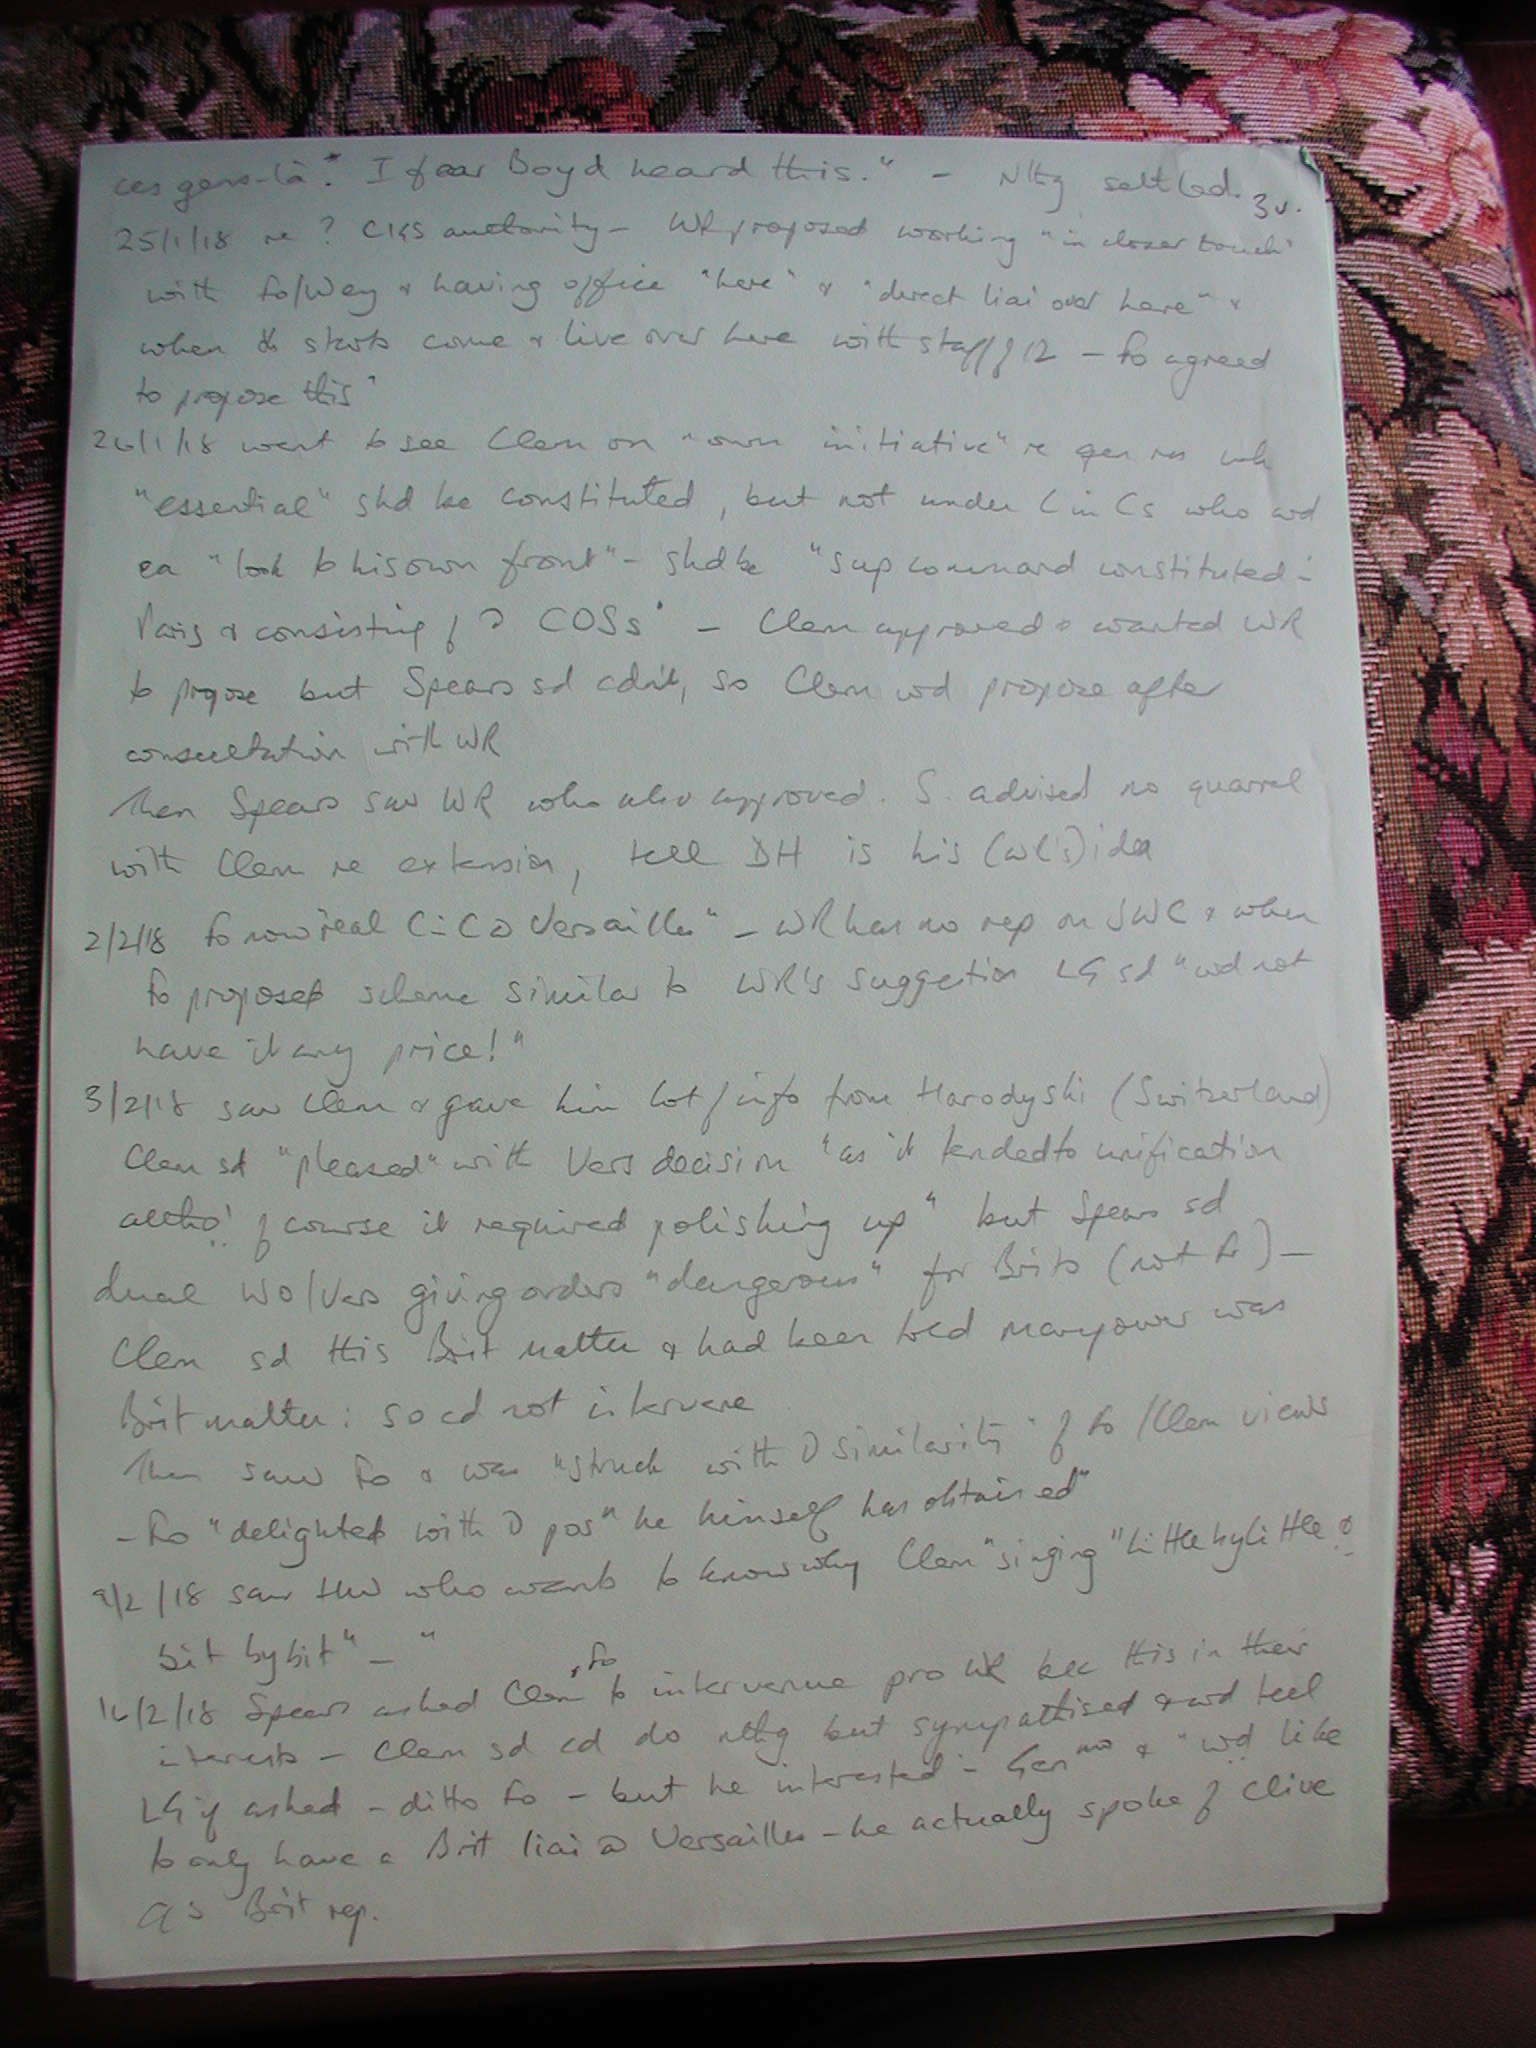 ces gens-là." I fear Boyd heard this." - Nthg settled.
3v.
25/1/18 re ? CIGS authority - WR proposed working "in closer touch"
with Fo/Wey & having office "here" & "direct liai over here" &
when starts come & live over here with staff of 12 - Fo agreed
to propose this"
26/1/18 went to see Clem on "own initiative" re gen res wh
"essential" shd be constituted, but not under C in Cs who wd
ea "look to his own front" - shd be "sup command constituted in
Paris & consisting of COSs" - Clem approved & wanted WR
to propose but Spears sd cdnt, so Clem wd propose after
consultation with WR
Then Spears saw WR who also approved. S. advised no quarrel
with Clem re extension, tell DH is his (WR's) idea
2/2/18 Fo now "real C-in-C Versailles" - WR has no rep on SWC & when
Fo proposed scheme similar to WR's suggestion LG sd "wd not
have it any price!"
3/2/18 saw Clem & gave him lot of info from Harodyski (Switzerland)
Clem sd "pleased" with Vers decision "as it tended to unification
altho' of course it required polishing up" but Spears sd
dual WO/Vers giving orders "dangerous" for Brits (not Fr) -
Clem sd this Brit matter & had been told manpower was
Brit matter: so cd not intervene
Then saw Fo & was "struck with similarity" of Fo/Clem views
- Fo "delighted with pos" he himself has obtained"
9/2/18 saw HW who wants to know why Clem "singing "little by little &
bit by bit" - "
16/2/18 Spears asked Clem, Fo to intervenue pro WR bec this in their
interests - Clem sd cd do nthg but sympathised & wd tell
LG if asked - ditto Fo - but he interested in & "wd like
to only have a Brit liai Versailles - he actually spoke of Clive
as Brit rep.